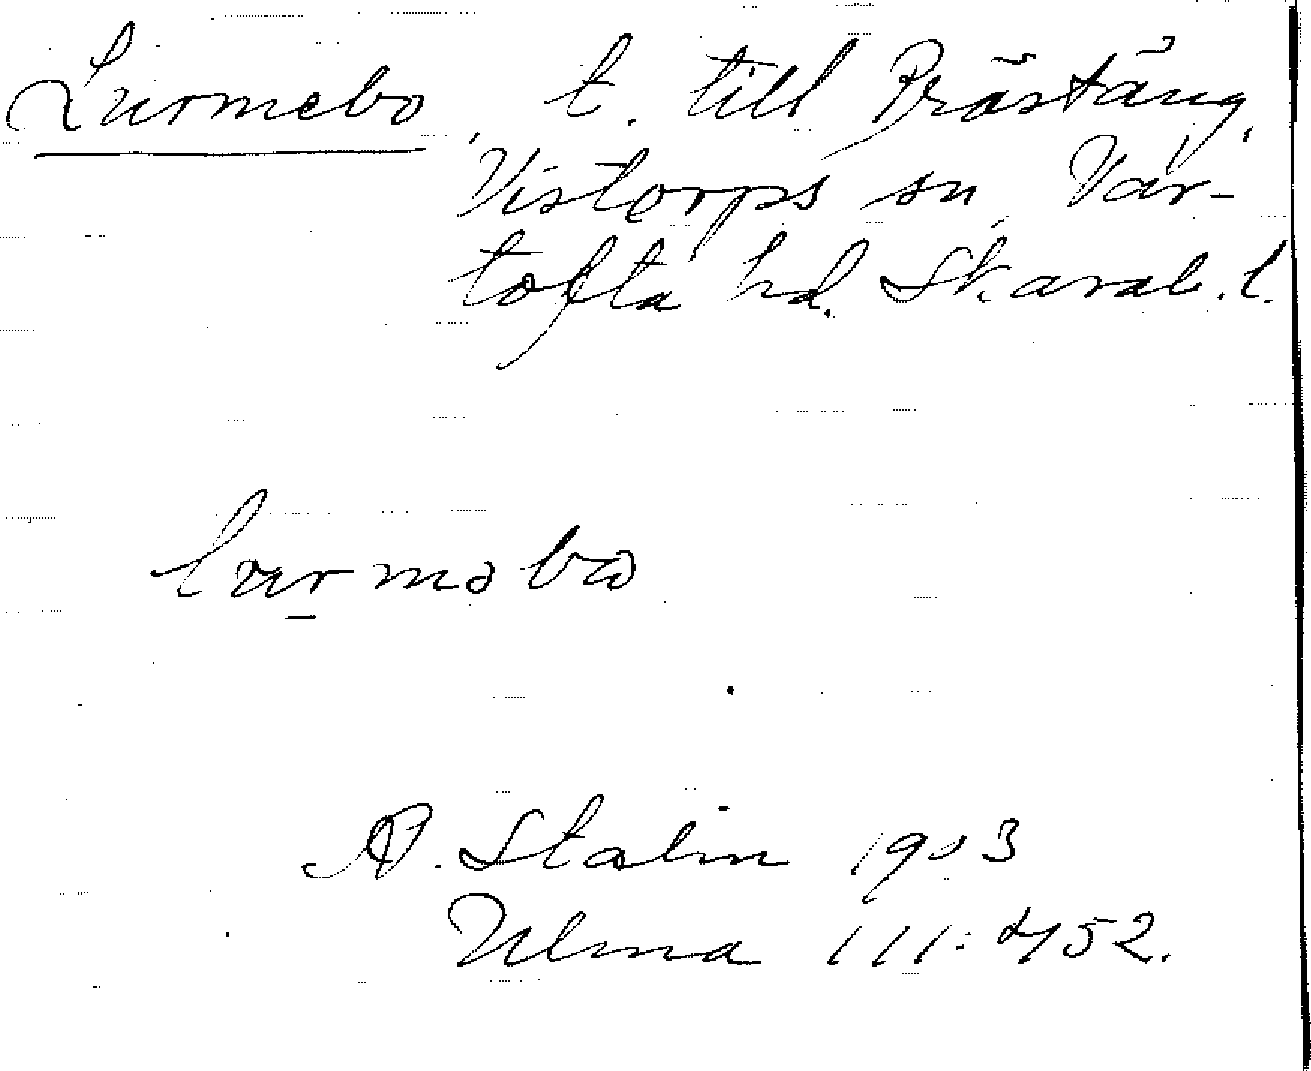 Lurmebo, t. till Prästäng,
Vistorps sn, Var-
tofta hd. Skarab. l.
lurməbω
A. Stalin 1903
Ulma 111:452.